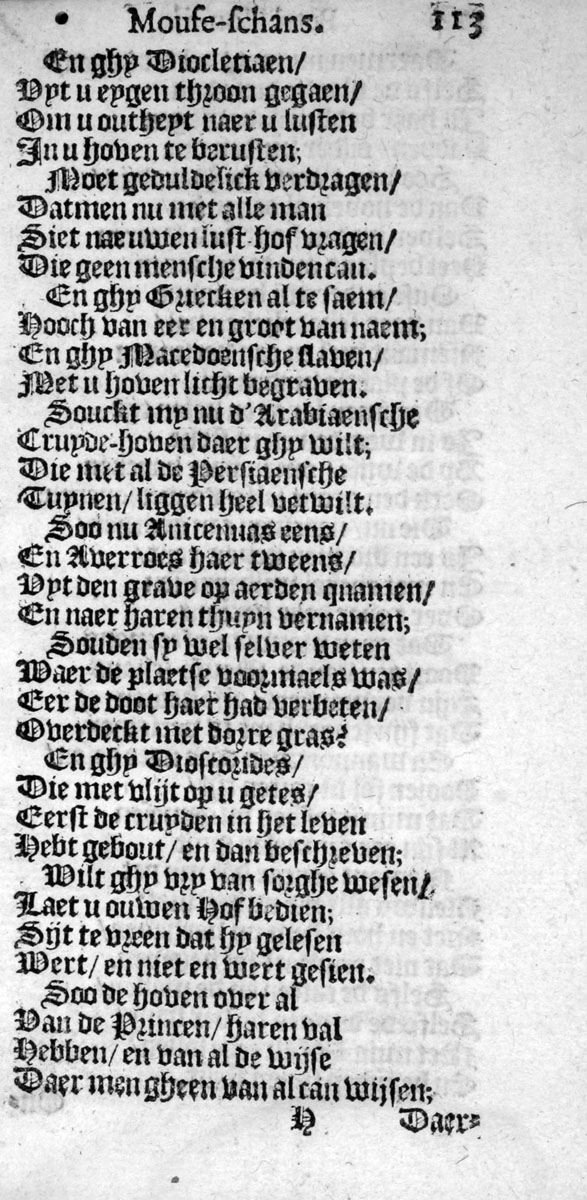 Mouse-schans. 113
En ghy Diocletiaen/
Vyt u eygen throon gegaen/
Om u outheyt naer u lusten
In u hoven te berusten;
Moet geduldelick verdragen/
Datmen nu met alle man
Siet nae uwen lust-hof vragen/
Die geen mensche vinden can.
En ghy Griecken al te saem/
Hooch van eer en groot van naem;
En ghy Macedoensche slaven/
Met u hoven licht begraven.
Souckt my nu d'Arabiaensche
Cruyde-hoven daer ghy wilt;
Die met al de Persiaensche
Tuynen/ liggen heel verwilt.
Soo nu Avicennas eens/
En Averroes haer tweens/
Vyt den grave op aerden quamen/
En naer haren thuyn vernamen;
Souden sy wel selver weten
Waer de plaetse voormaels was/
Eer de doot haer had verbeten/
Overdeckt met dorre gras?
En ghy Dioscorides/
Die met vlijt op u getes/
Eerst de cruyden in het leven
Hebt gebout/ en dan beschreven;
Wilt ghy vry van sorghe wesen/
Laet u ouwen Hof bedien;
Sijt te vreen dat hy gelesen
Wert/ en niet en wert gesien.
Soo de hoven over al
Van de Princen/ haren val
Hebben/ en van al de wijse
Daer men gheen van al can wijsen;
H Daer-